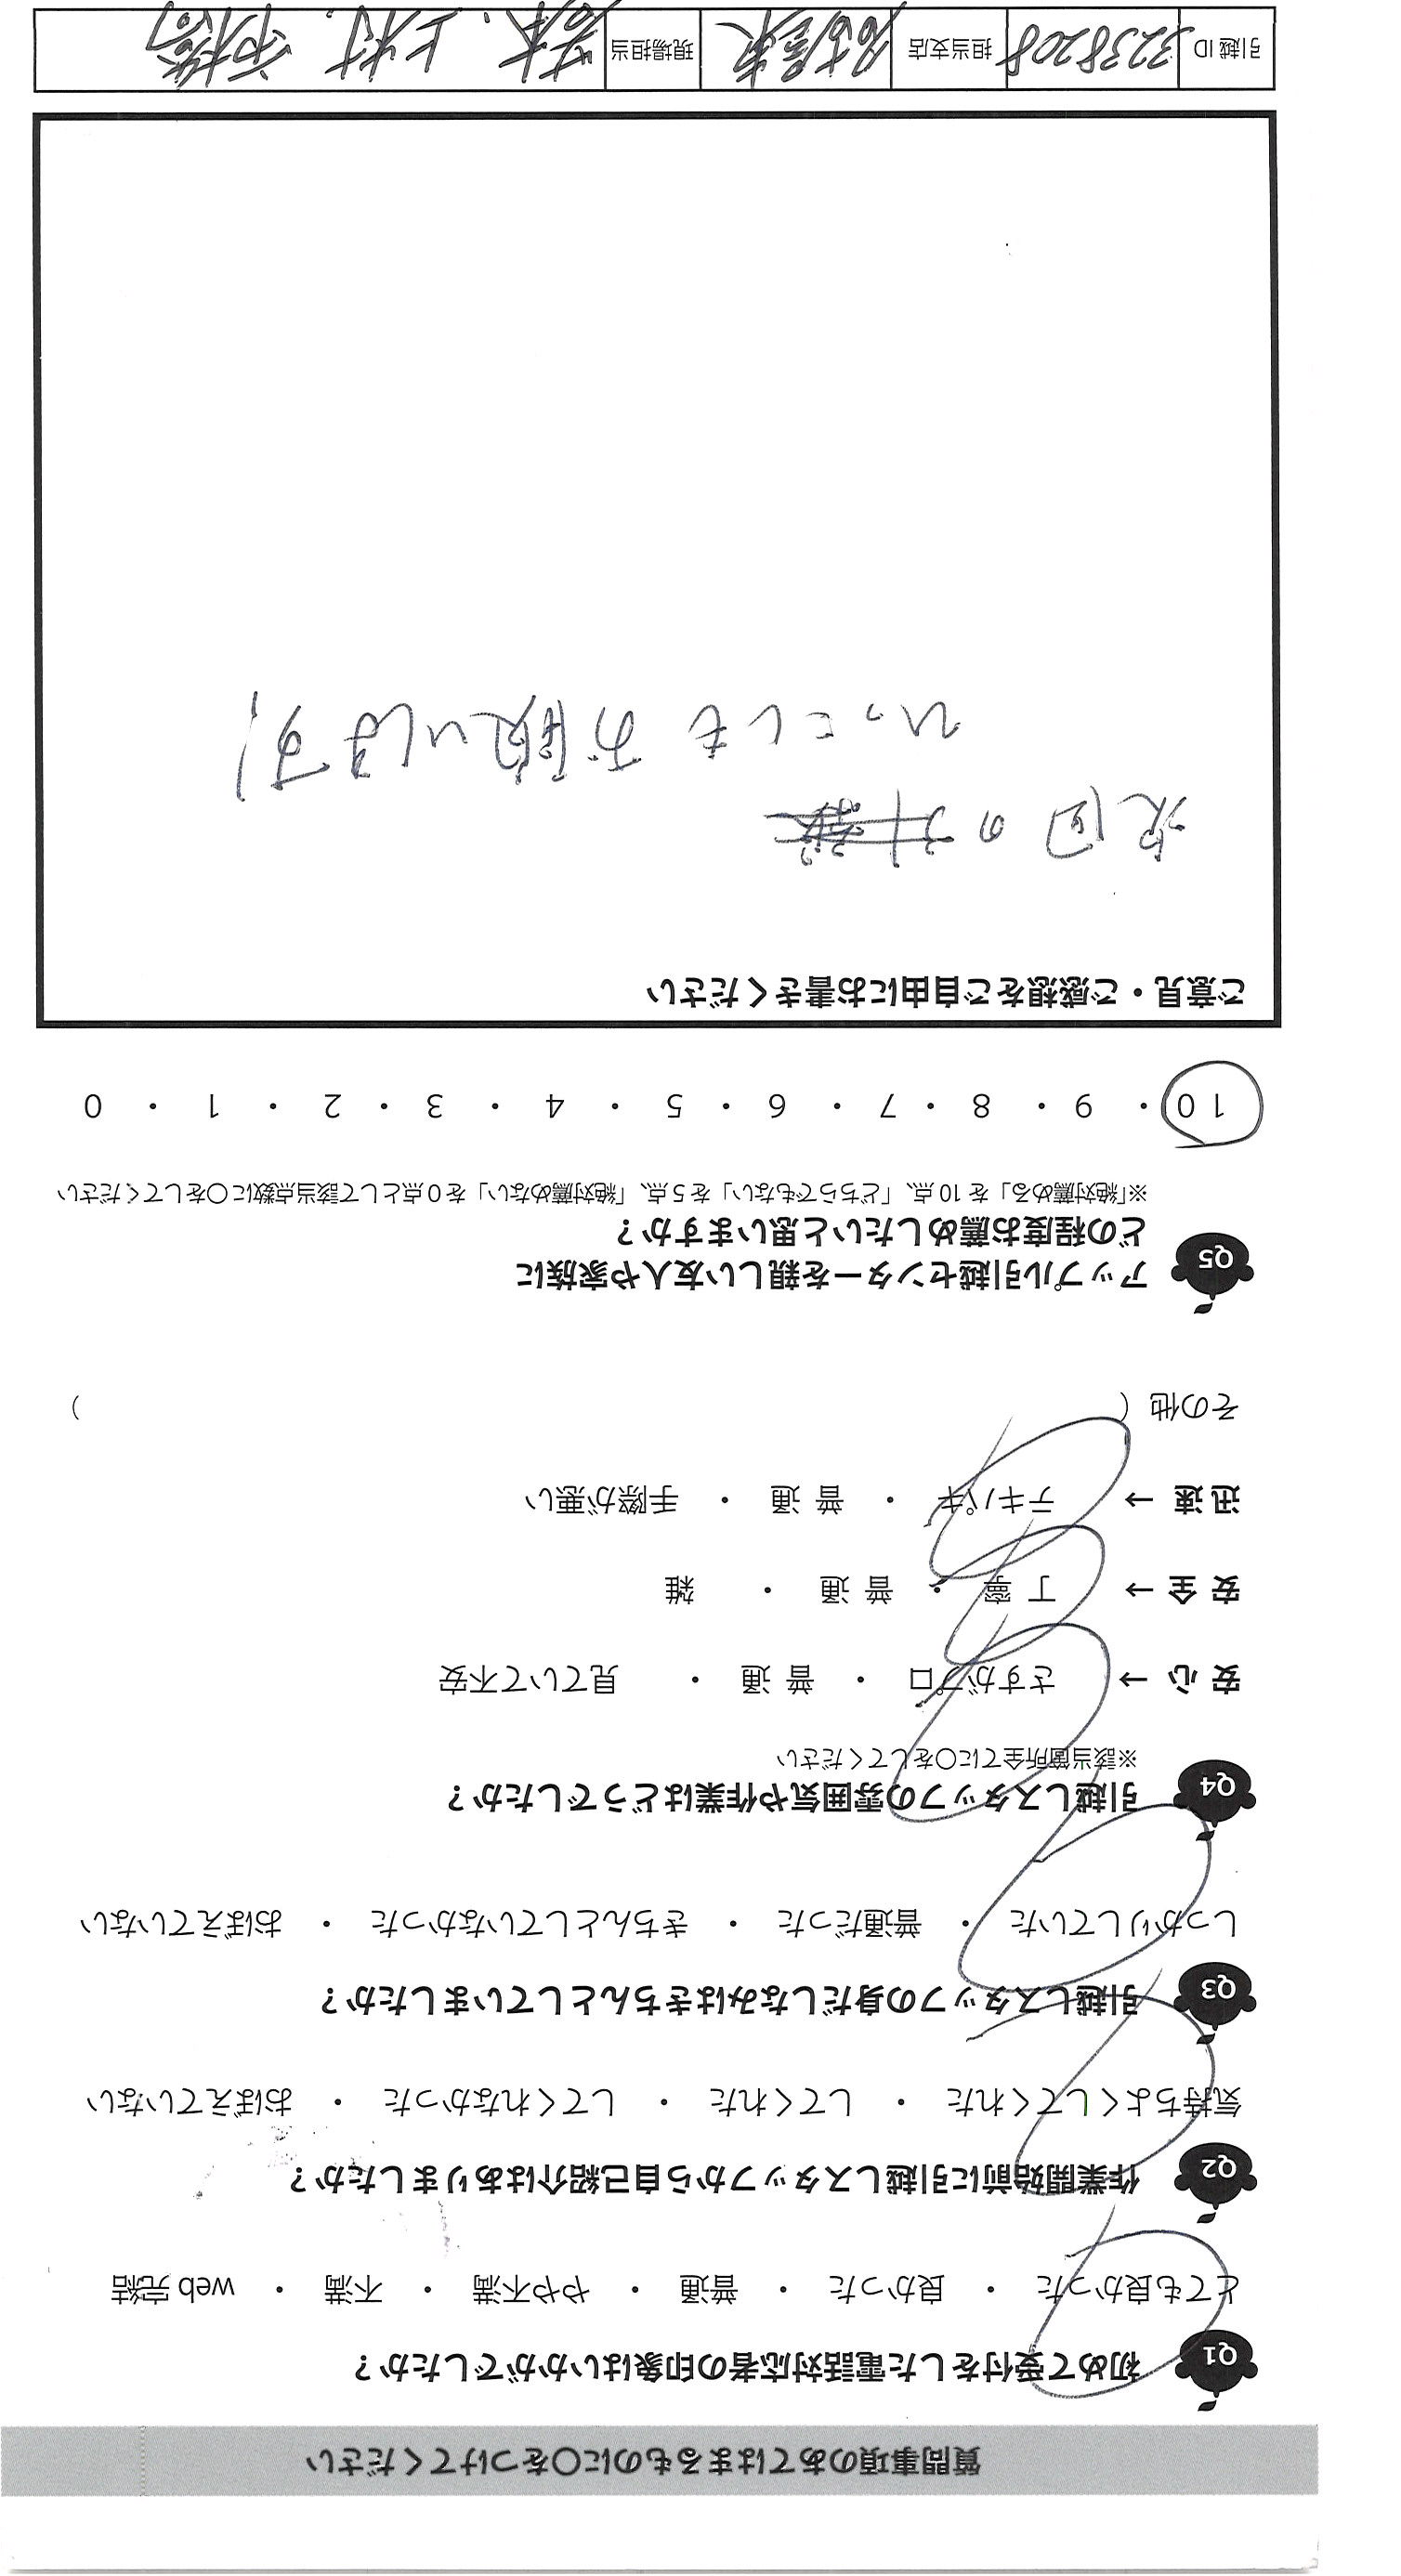 質問事項のあてはまるものに○をつけてください
Q1 初めて受付をした電話対応者の印象はいかがでしたか？
とても良かった ・ 良かった ・ 普通 ・ やや不満 ・ 不満 ・ web完結
Q2 作業開始前に引越しスタッフから自己紹介はありましたか？
気持ちよくしてくれた ・ してくれた ・ してくれなかった ・ おぼえていない
Q3 引越しスタッフの身だしなみはきちんとしていましたか？
しっかりしていた ・ 普通だった ・ きちんとしていなかった ・ おぼえていない
Q4 引越しスタッフの雰囲気や作業はどうでしたか？
※該当箇所全てに○をしてください
安心 → さすがプロ ・ 普通 ・ 見ていて不安
安全 → 丁寧 ・ 普通 ・ 雑
迅速 → テキパキ ・ 普通 ・ 手際が悪い
その他（ ）
Q5 アップル引越センターを親しい友人や家族に
どの程度お薦めしたいと思いますか？
※「絶対薦める」を10点、「どちらでもない」を5点、「絶対薦めない」を0点として該当点数に○をしてください
10 ・ 9 ・ 8 ・ 7 ・ 6 ・ 5 ・ 4 ・ 3 ・ 2 ・ 1 ・ 0
ご意見・ご感想をご自由にお書きください
次回の
ひっこしも お願いします!
引越ID 3238208 担当支店 名古屋東 現場担当 若木、上村、市橋